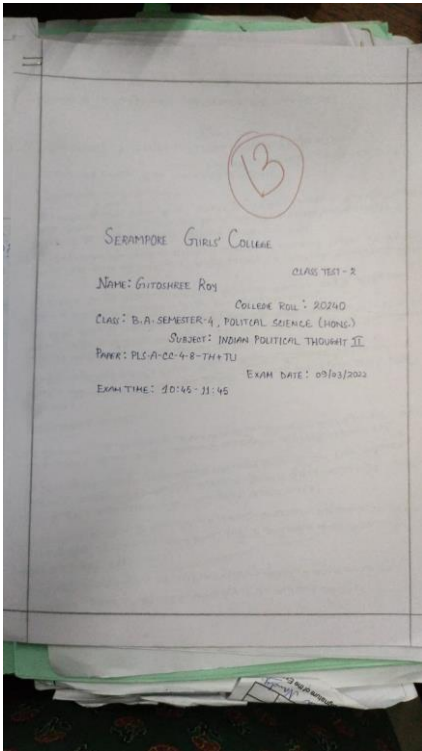 13
SERAMPORE GIIRLS' COLLEGE
CLASS TEST - 2
NAME: GIITOSHREE ROY
COLLEGE ROLL: 20240
CLASS: B.A. SEMESTER-4, POLITCAL SCIENCE (HONS.)
SUBJECT: INDIAN POLITICAL THOUGHT II
PAPER: PLS-A-CC-4-8-TH+TU
EXAM DATE: 09/03/2022
EXAM TIME: 10:45-11:45